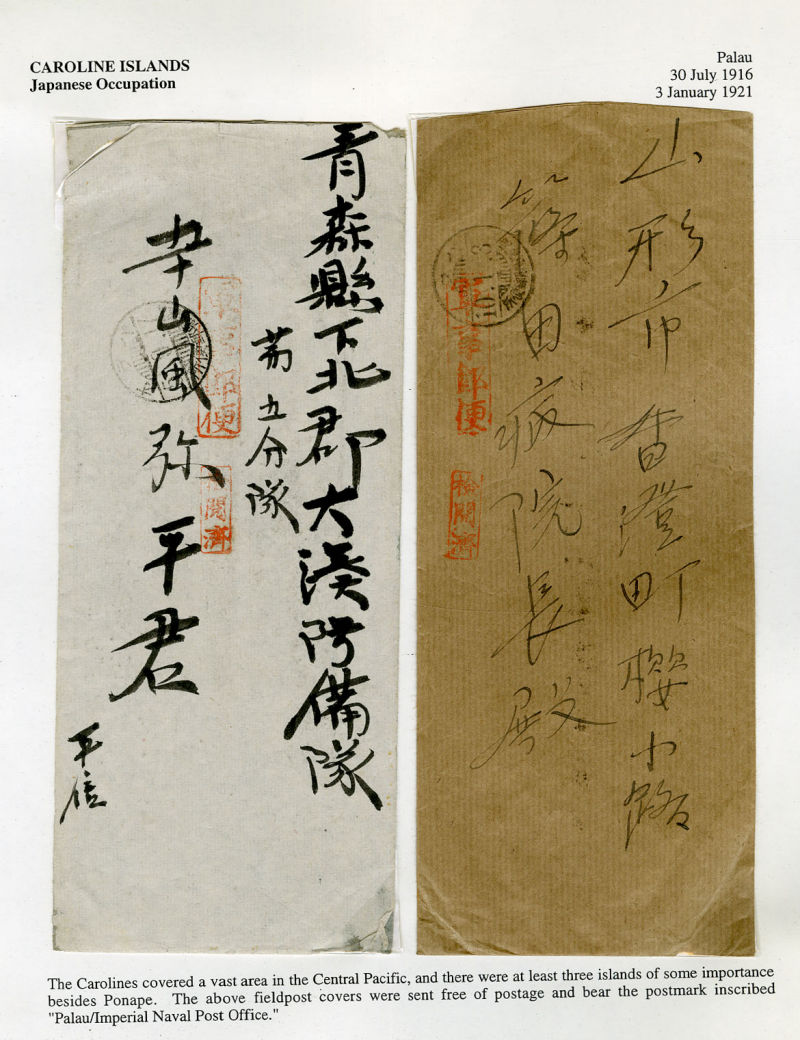 CAROLINE ISLANDS
Japanese Occupation
Palau
30 July 1916
3 January 1921
青森縣下北郡大湊防備隊
第五分隊
幸山風弥平君
平信
軍事郵便
閲濟
山形市香澄町櫻小路
篠田病院長殿
軍事郵便
檢閲濟
The Carolines covered a vast area in the Central Pacific, and there were at least three islands of some importance
besides Ponape. The above fieldpost covers were sent free of postage and bear the postmark inscribed
"Palau/Imperial Naval Post Office."